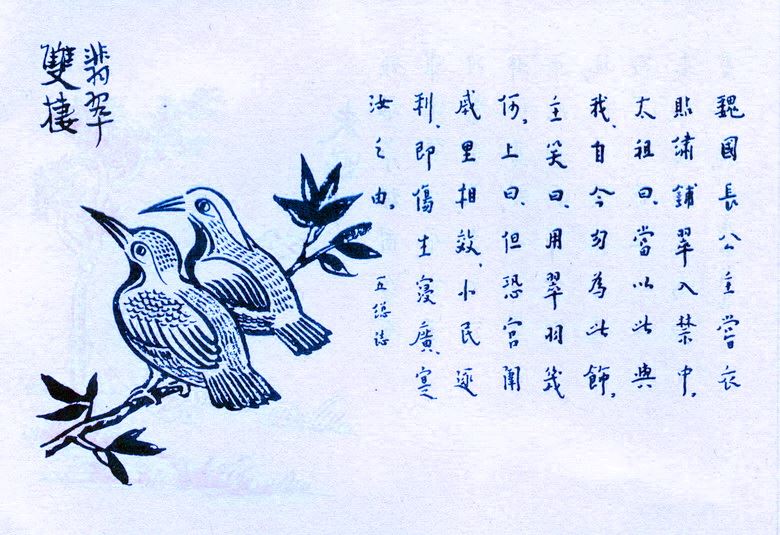 翡翠
雙棲
魏國長公主嘗衣
貼繡鋪翠入禁中。
太祖曰、當以此與
我、自今勿為此飾。
主笑曰、用翠羽幾
何。上曰、但恐宮闈
戚里相效、小民逐
利、即傷生寖廣、寔
汝之由。
五總志